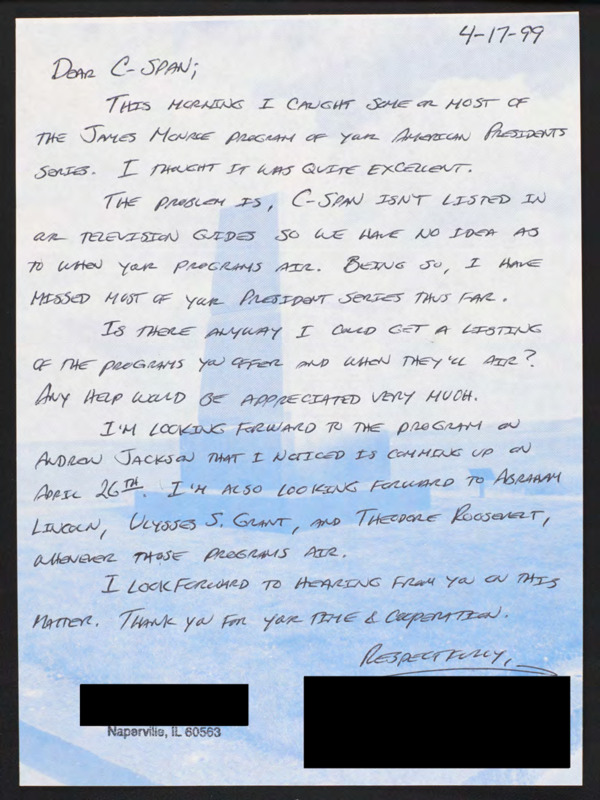 4-17-99
DEAR C-SPAN;
THIS MORNING I CAUGHT SOME OR MOST OF
THE JAMES MONROE PROGRAM OF YOUR AMERICAN PRESIDENTS
SERIES. I THOUGHT IT WAS QUITE EXCELLENT.
THE PROBLEM IS, C-SPAN ISN'T LISTED IN
OUR TELEVISION GUIDES SO WE HAVE NO IDEA AS
TO WHEN YOUR PROGRAMS AIR. BEING SO, I HAVE
MISSED MOST OF YOUR PRESIDENT SERIES THUS FAR.
IS THERE ANYWAY I COULD GET A LISTING
OF THE PROGRAMS YOU OFFER AND WHEN THEY'LL AIR?
ANY HELP WOULD BE APPRECIATED VERY MUCH.
I'M LOOKING FORWARD TO THE PROGRAM ON
ANDREW JACKSON THAT I NOTICED IS COMMING UP ON
APRIL 26TH. I'M ALSO LOOKING FORWARD TO ABRAHAM
LINCOLN, ULYSSES S. GRANT, AND THEODORE ROOSEVELT,
WHENEVER THOSE PROGRAMS AIR.
I LOOK FORWARD TO HEARING FROM YOU ON THIS
MATTER. THANK YOU FOR YOUR TIME & COOPERATION.
RESPECTFULLY,
Naperville, IL 60563